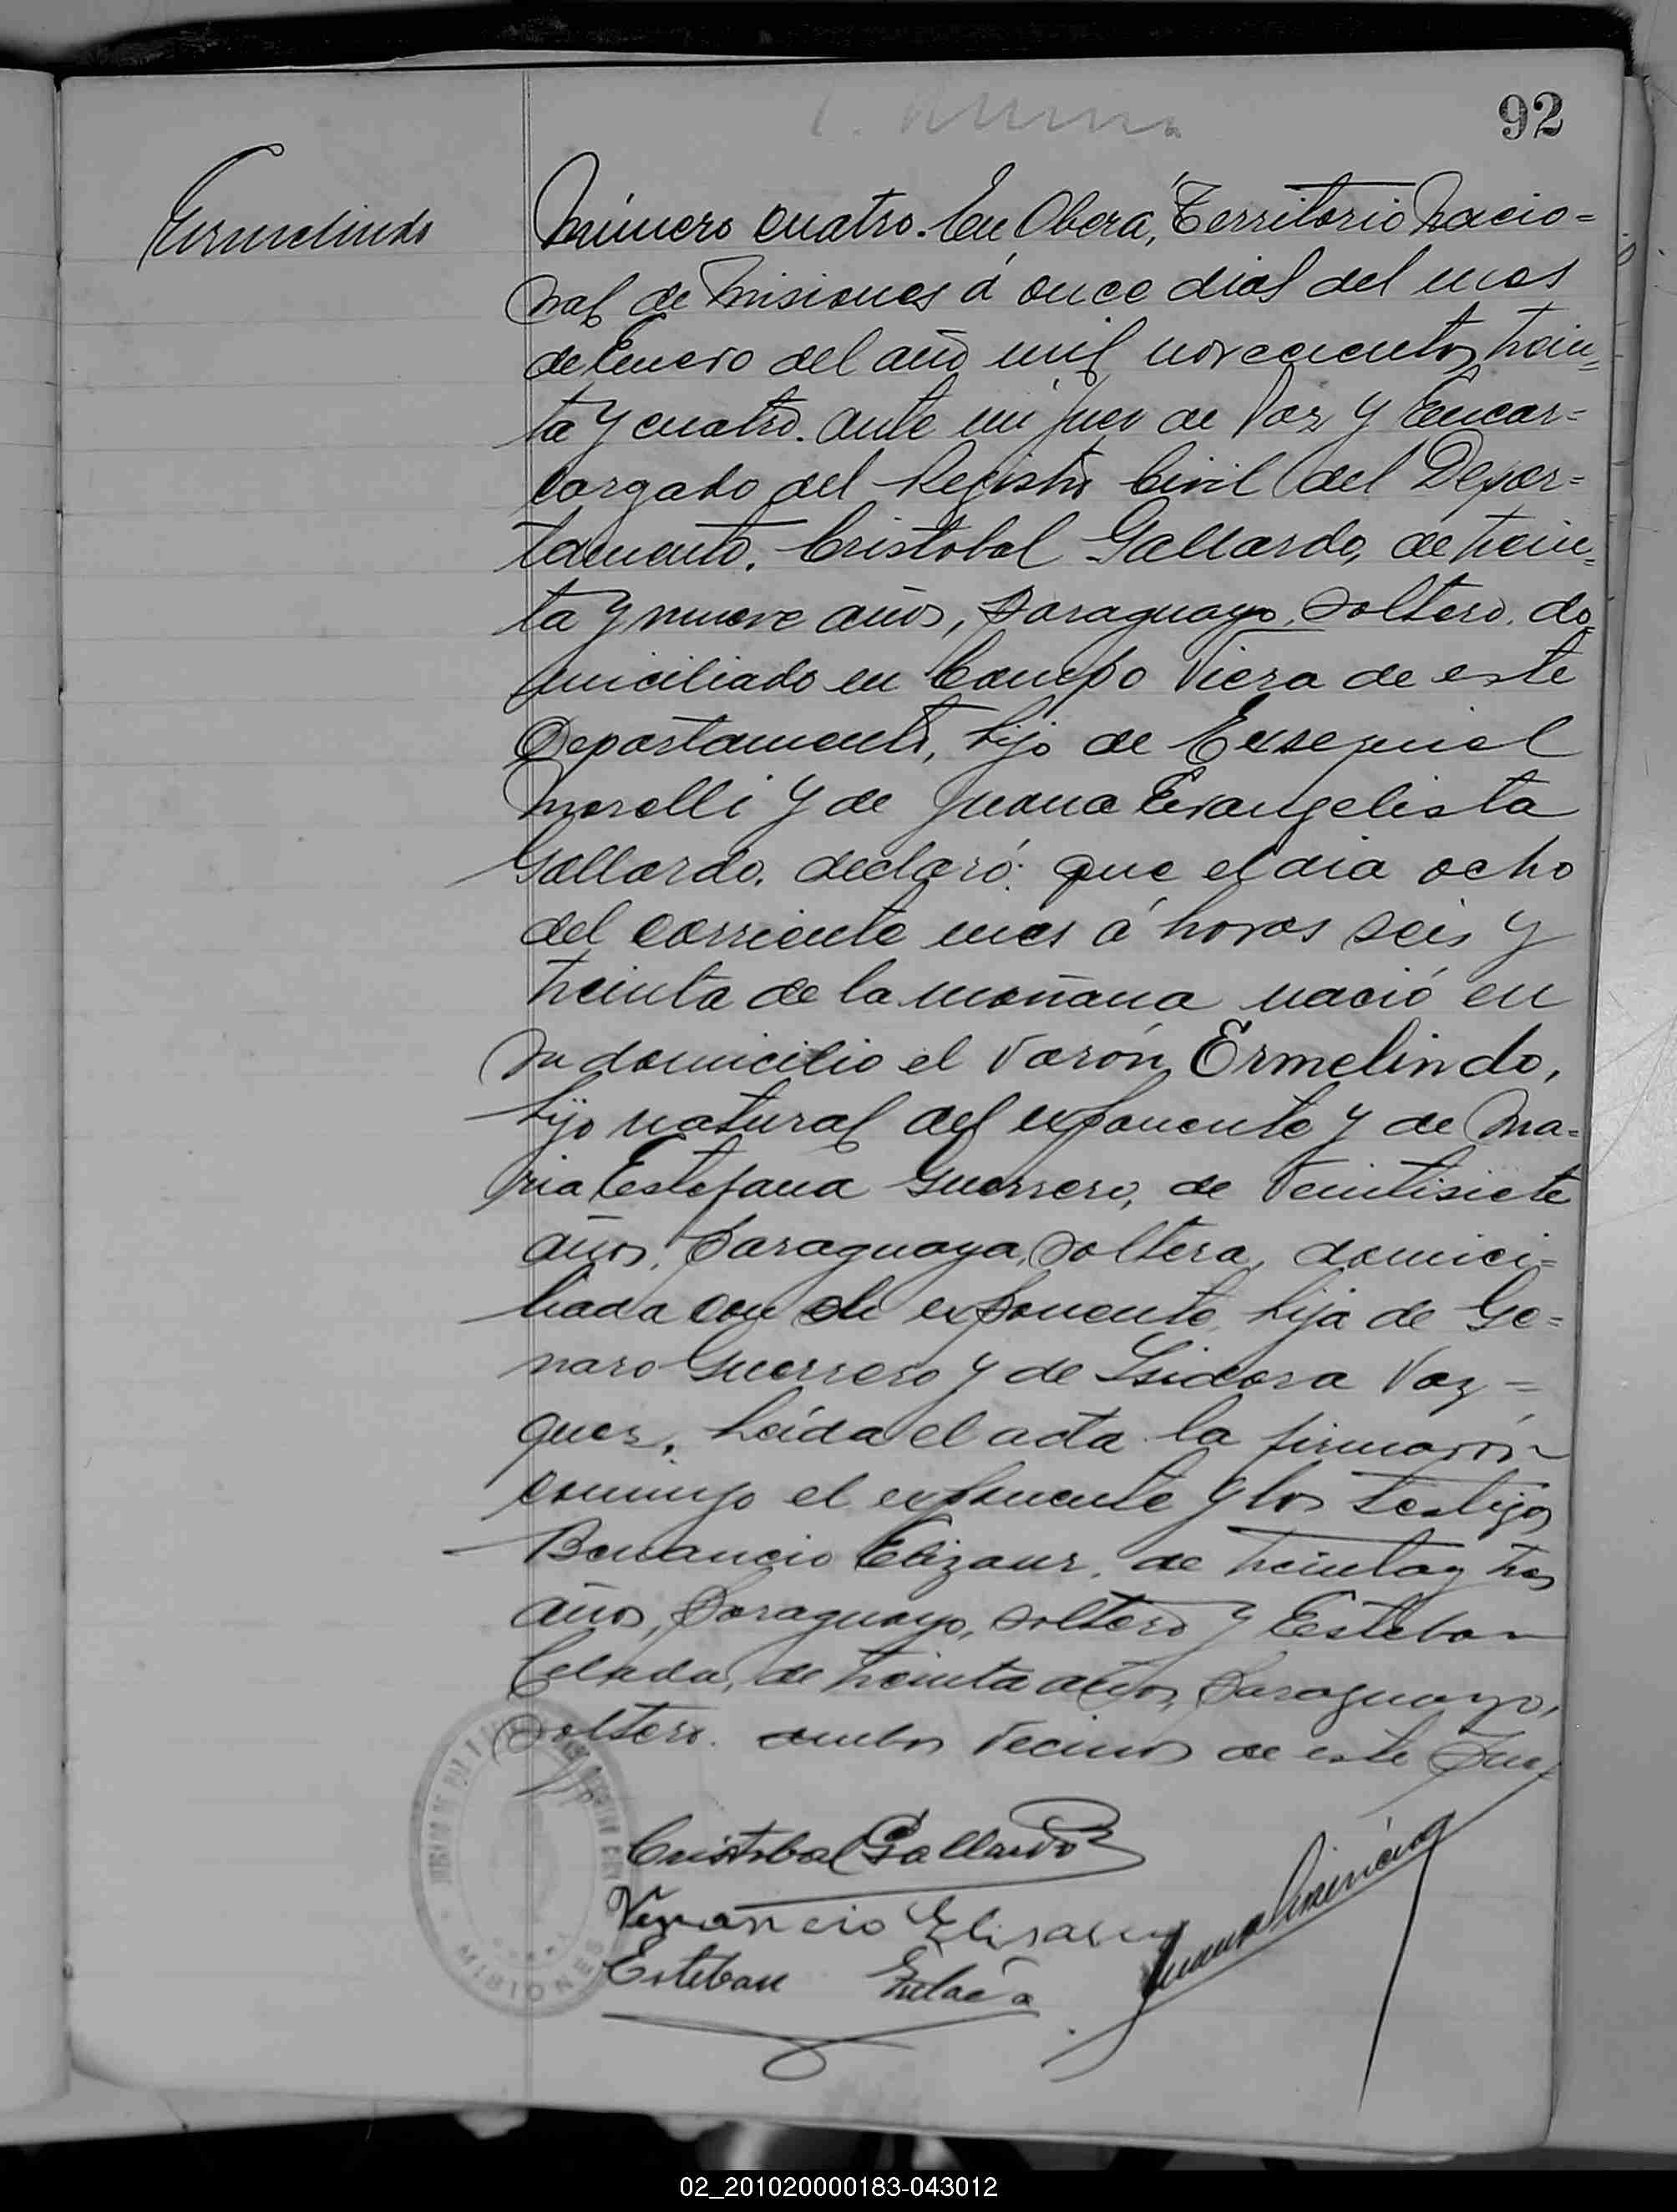 92
Ermelindo
Número cuatro. En Oberá, Territorio Nacio=
nal de Misiones á once dias del mes
de Enero del año mil novecientos trein=
ta y cuatro. ante mi Juez de Paz y Encar=
cargado del Registro Civil del Depar=
tamento. Cristobal Gallardo, de trein=
ta y nueve años, Paraguayo, Soltero, do
miciliado en Campo Viera de este
Departamento, hijo de Exsequiel
Morelli y de Juana Evangelista
Gallardo. declaró: que el dia ocho
del corriente mes á horas seis y
treinta de la mañana nació en
su domicilio el varón Ermelindo,
hijo natural del exponente y de Ma=
ria Estefana Guerrero, de Veintisiete
años, Paraguaya, Soltera, domici=
liada con el exponente, hija de Ge=
naro Guerrero y de Isidora Vaz=
quez. Leída el acta la firmarón
conmigo el exponente y los testigos
Benancio Elizaur, de treinta y tres
años, Paraguayo, soltero y Esteban
de treinta años, Paraguayo,
Soltero. ambos Vecinos de este
Cristobal Gallardo
Venancio
Esteban
MISIONES
02_201020000183-043012